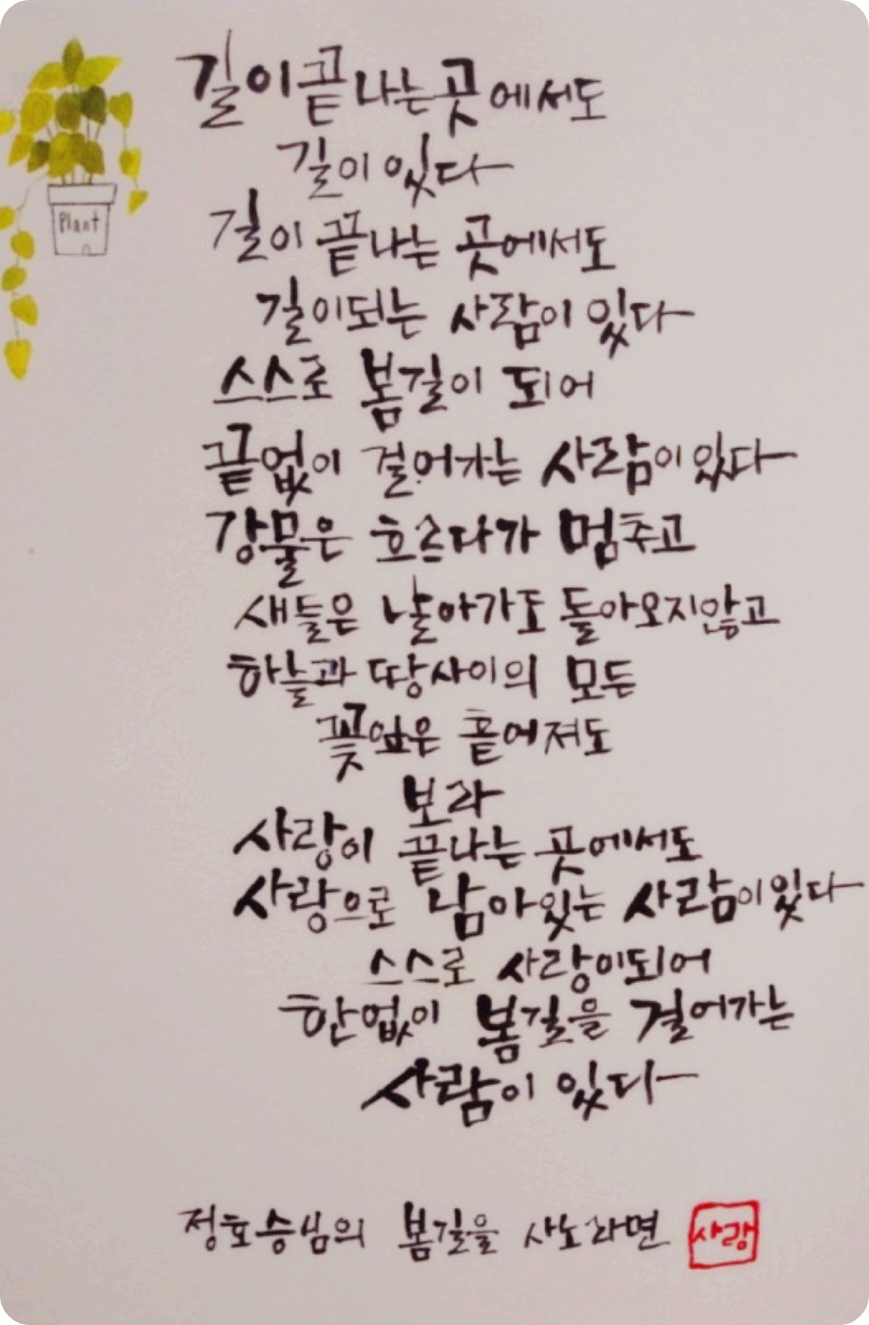 Plant
길이 끝나는 곳에서도
길이 있다
길이 끝나는 곳에서도
길이되는 사람이 있다
스스로 봄길이 되어
끝없이 걸어가는 사람이 있다
강물은 흐르다가 멈추고
새들은 날아가도 돌아오지않고
하늘과 땅사이의 모든
꽃잎은 흩어져도
보라
사랑이 끝나는 곳에서도
사랑으로 남아있는 사람이 있다
스스로 사랑이되어
한없이 봄길을 걸어가는
사람이 있다
정호승님의 봄길을 사노라면
사랑